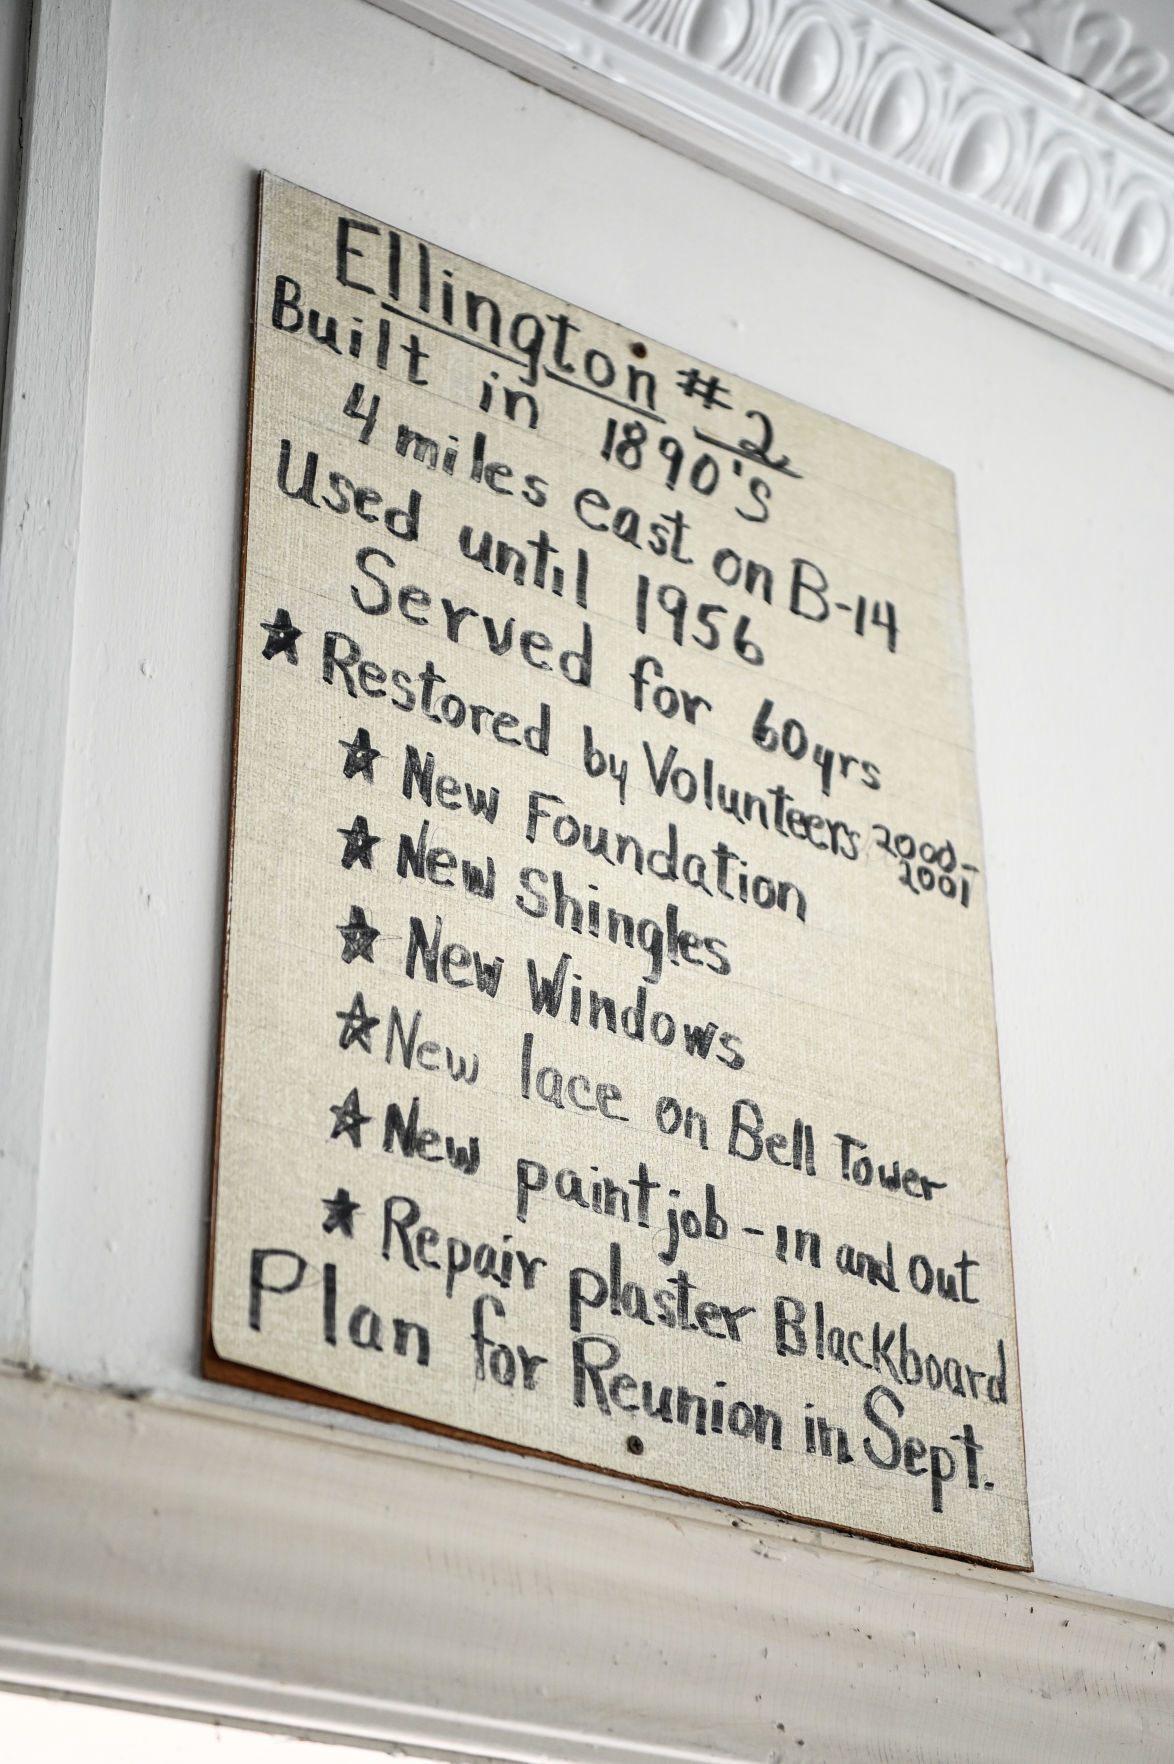 Ellington #2
Built in 1890's
4 miles east on B-14
Used until 1956
Served for 60yrs
★ Restored by Volunteers 2000-
2001
★ New Foundation
★ New Shingles
★ New Windows
★ New lace on Bell Tower
★ New paint job - in and out
★ Repair plaster Blackboard
Plan for Reunion in Sept.